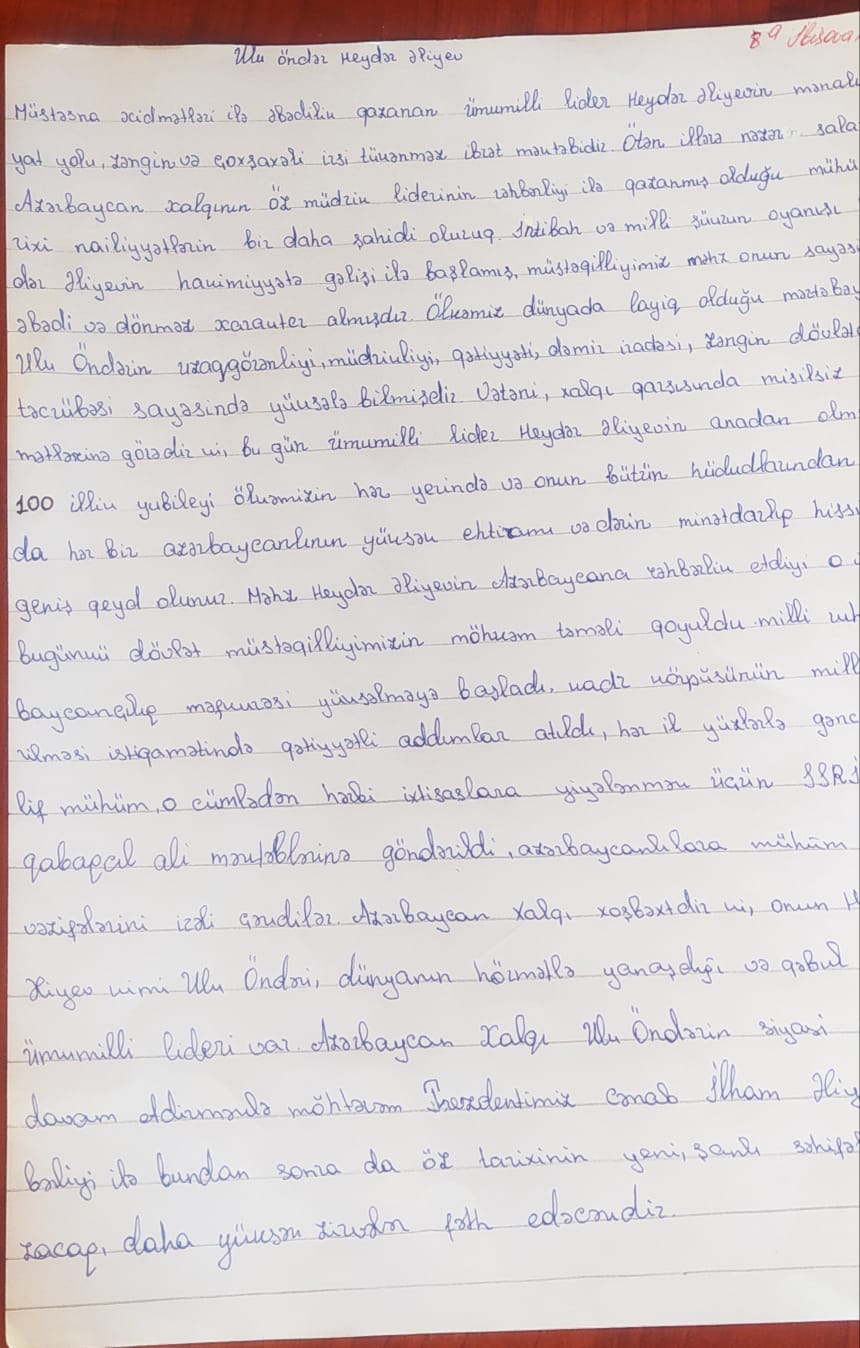 8a
Ulu öndər Heydər Əliyev
Müstəsna xidmətləri ilə əbədilik qazanan ümumilli lider Heydər Əliyevin mənalı
yat yolu, zəngin və çoxşaxəli irsi tükənməz ibrət məktəbidir. Ötən illərə nəzər sala
Azərbaycan xalqının Öz müdrik liderinin rəhbərliyi ilə qazanmış olduğu mühü
rixi nailiyyətlərin bir daha şahidi oluruq. İntibah və milli şüurun oyanışı
dər Əliyevin hakimiyyətə gəlişi ilə başlamış, müstəqilliyimiz məhz onun sayəsi
əbədi və dönməz xarakter almışdır. Ölkəmiz dünyada layiq olduğu mərtəbəy
Ulu Öndərin uzaqgörənliyi, müdrikliyi, qətiyyəti, dəmir iradəsi, zəngin dövlət
təcrübəsi sayəsində yüksələ bilmişdir. Vətəni, xalqı qarşısında misilsiz
mətlərinə görədir ki, bu gün ümumilli lider Heydər Əliyevin anadan olm
100 illik yubileyi ölkəmizin hər yerində və onun bütün hüdudlarından
da hər bir azərbaycanlının yüksək ehtiramı və dərin minətdarlıq hissi
geniş qeyd olunur. Məhz Heydər Əliyevin Azərbaycana rəhbərlik etdiyi o
bugünkü dövlət müstəqilliyimizin möhkəm təməli qoyuldu milli ruh
baycançılıq məfkurəsi yüksəlməyə başladı, kadr körpüsünün mill
ilməsi istiqamətində qətiyyətli addımlar atıldı, hər il yüzlərlə gənc
lif mühüm, o cümlədən hərbi ixtisaslara yiyələnmək üçün SSRİ
qabaqcıl ali məktəblərinə göndərildi, azərbaycanlılara mühüm
vəzifələrini irəli çəkdilər. Azərbaycan Xalqı xoşbəxtdir ki, onun H
Əliyev kimi Ulu Öndəri, dünyanın hörmətlə yanaşdığı və qəbul
ümumilli lideri var. Azərbaycan Xalqı Ulu Öndərin siyasi
davam etdirməklə möhtərəm Prezdentimiz Cənab İlham Əliy
bərliyi ilə bundan sonra da öz tarixinin yeni, şanlı səhifəl
zacaq, daha yüksək zirvələr fəth edəcəkdir.